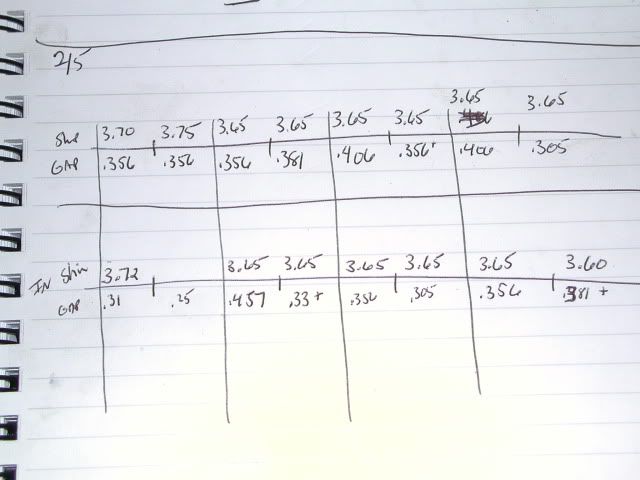 2/5
3.65 3.65
She 3.70 3.75 3.65 3.65 3.65 3.65
GAP .356 .356 .356 .381 .406 .356+ .406 .305
IN Shim 3.72 3.65 3.65 3.65 3.65 3.65 3.60
GAP .31 .25 .457 .33+ .356 .305 .356 .381 +